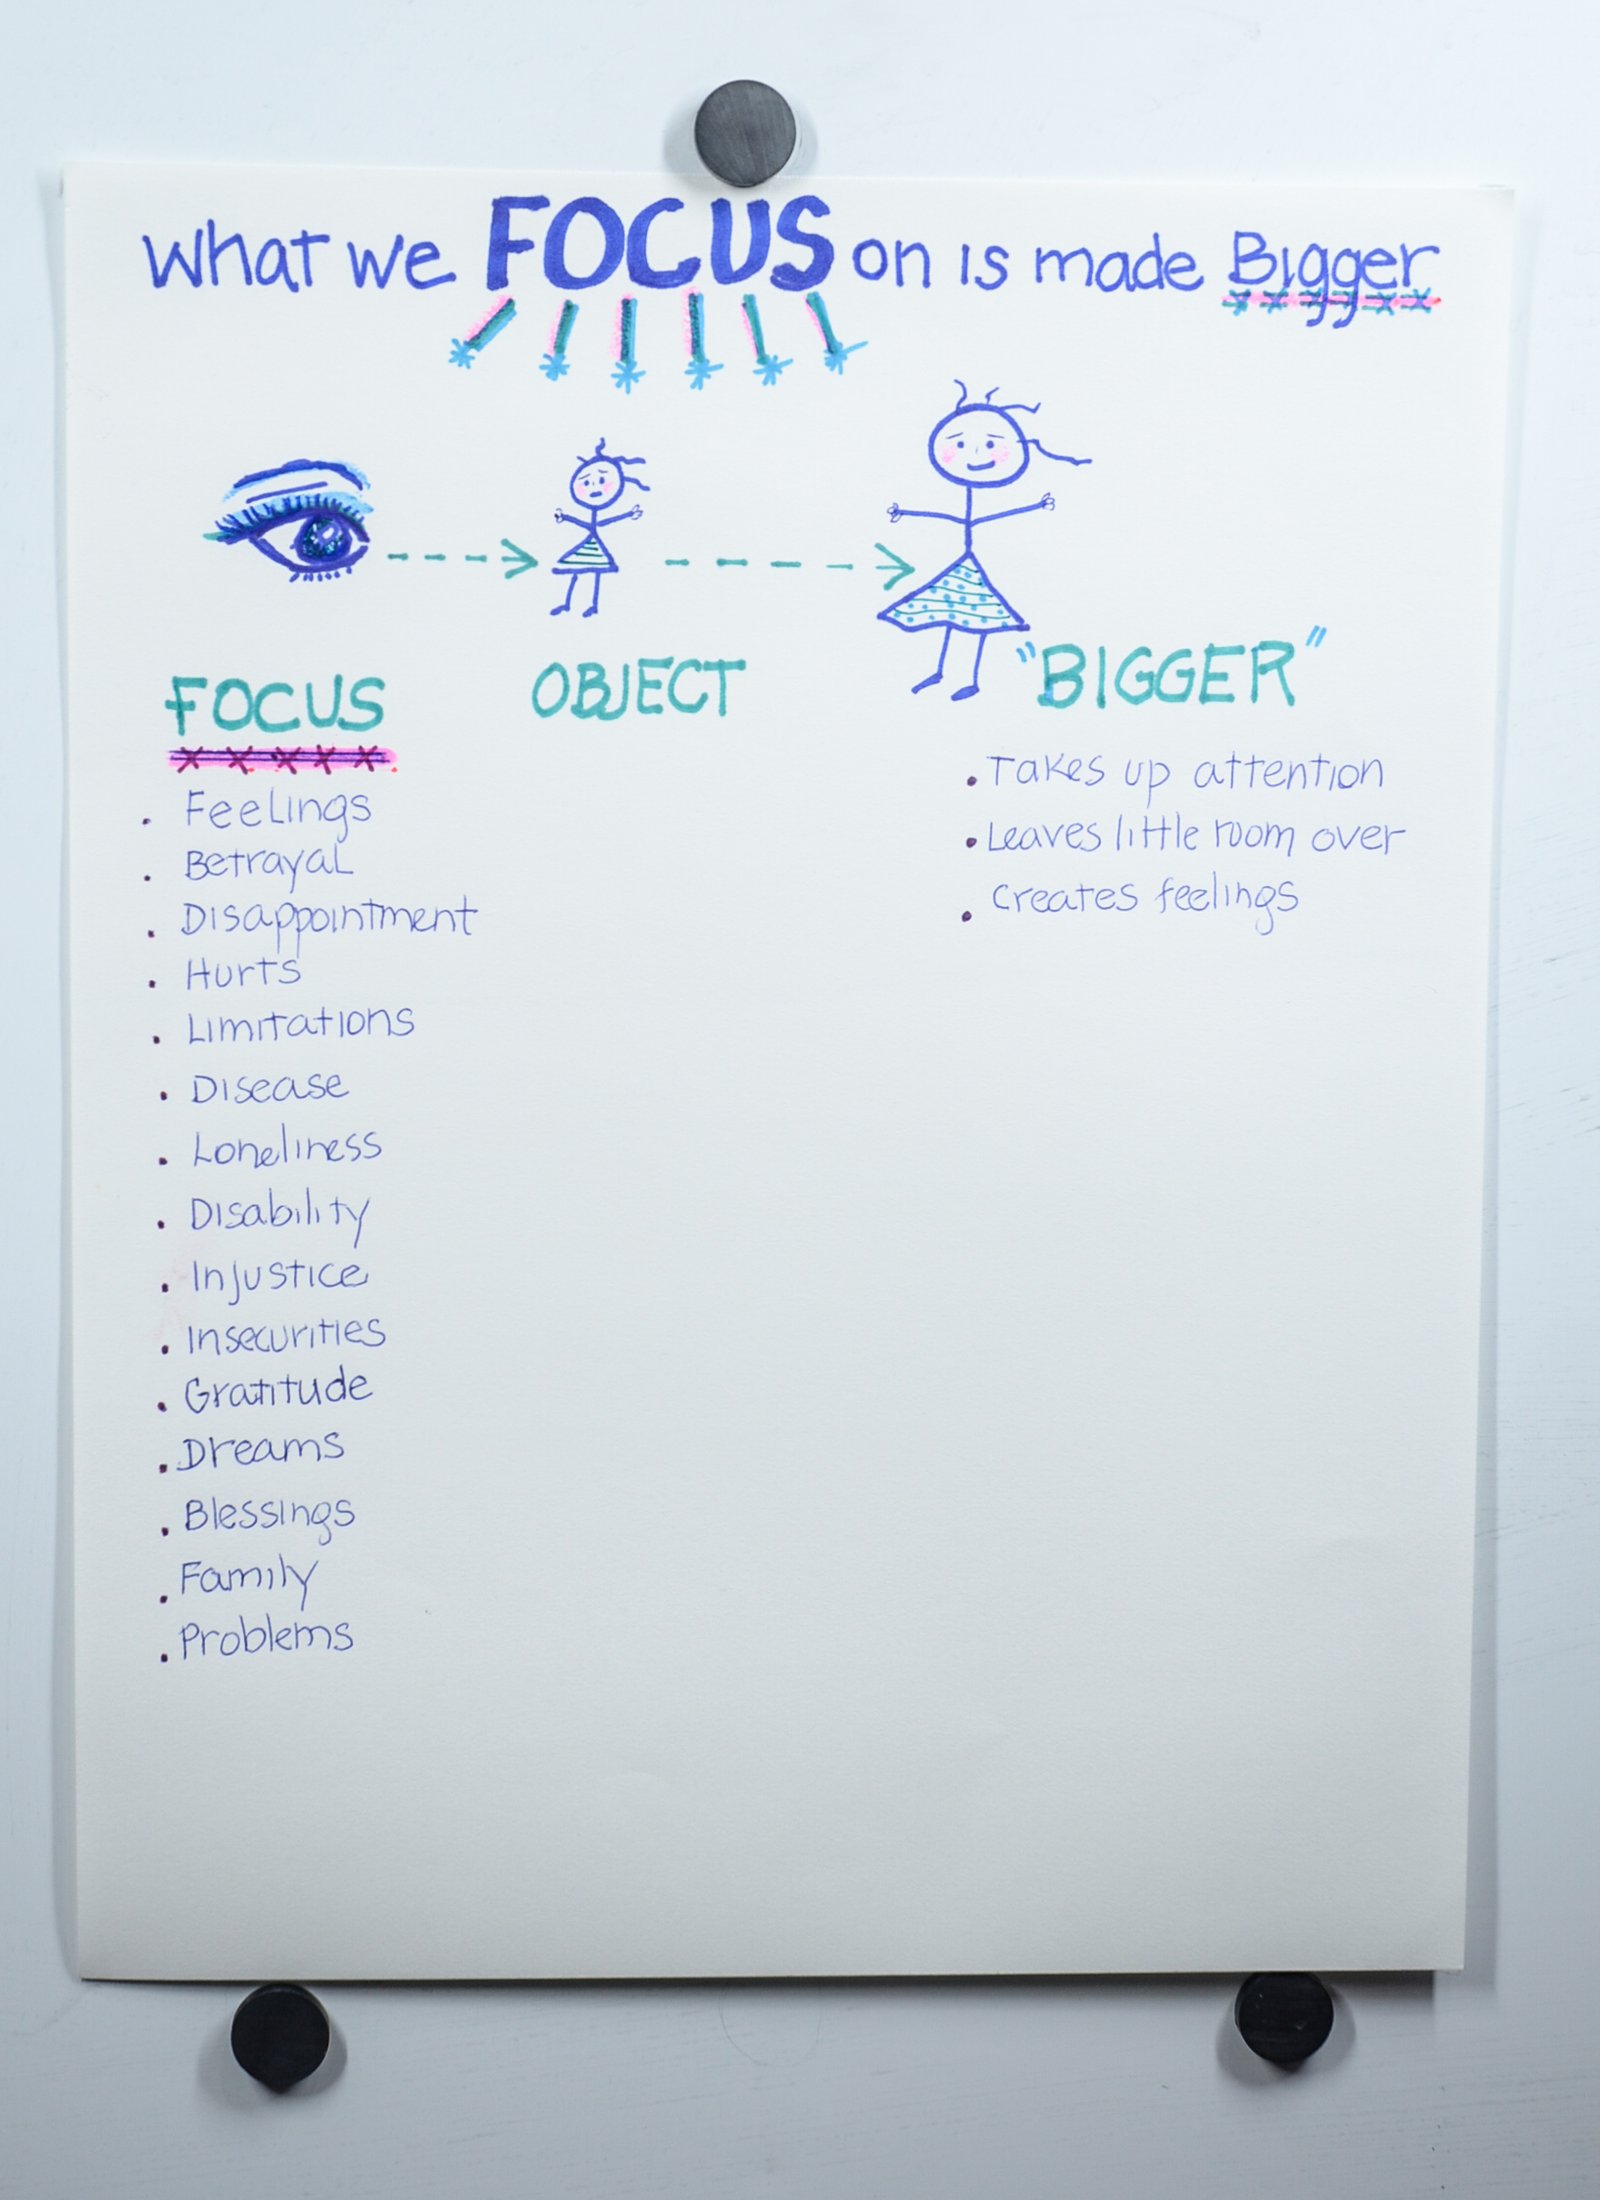 What we FOCUS on is made Bigger
FOCUS
OBJECT
"BIGGER"
. Feelings
. Betrayal
. Disappointment
. Hurts
. Limitations
. Disease
. Loneliness
. Disability
. Injustice
. Insecurities
. Gratitude
. Dreams
. Blessings
. Family
. Problems
. Takes up attention
. Leaves little room over
. creates feelings